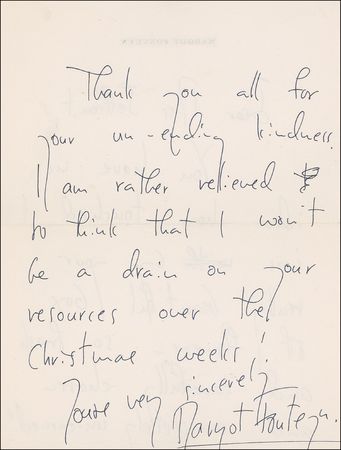 Thank you all for
your un-ending kindness.
I am rather relieved
to think that I won't
be a drain on your
resources over the
Christmas weeks!
Yours very sincerely
Margot Fonteyn.